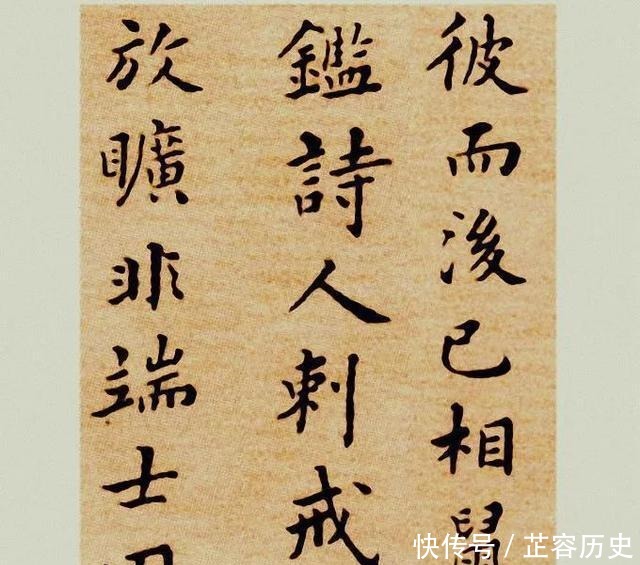 彼而後己相鼠
鑑詩人刺戒
放曠非端士
快传号 / 芷容历史